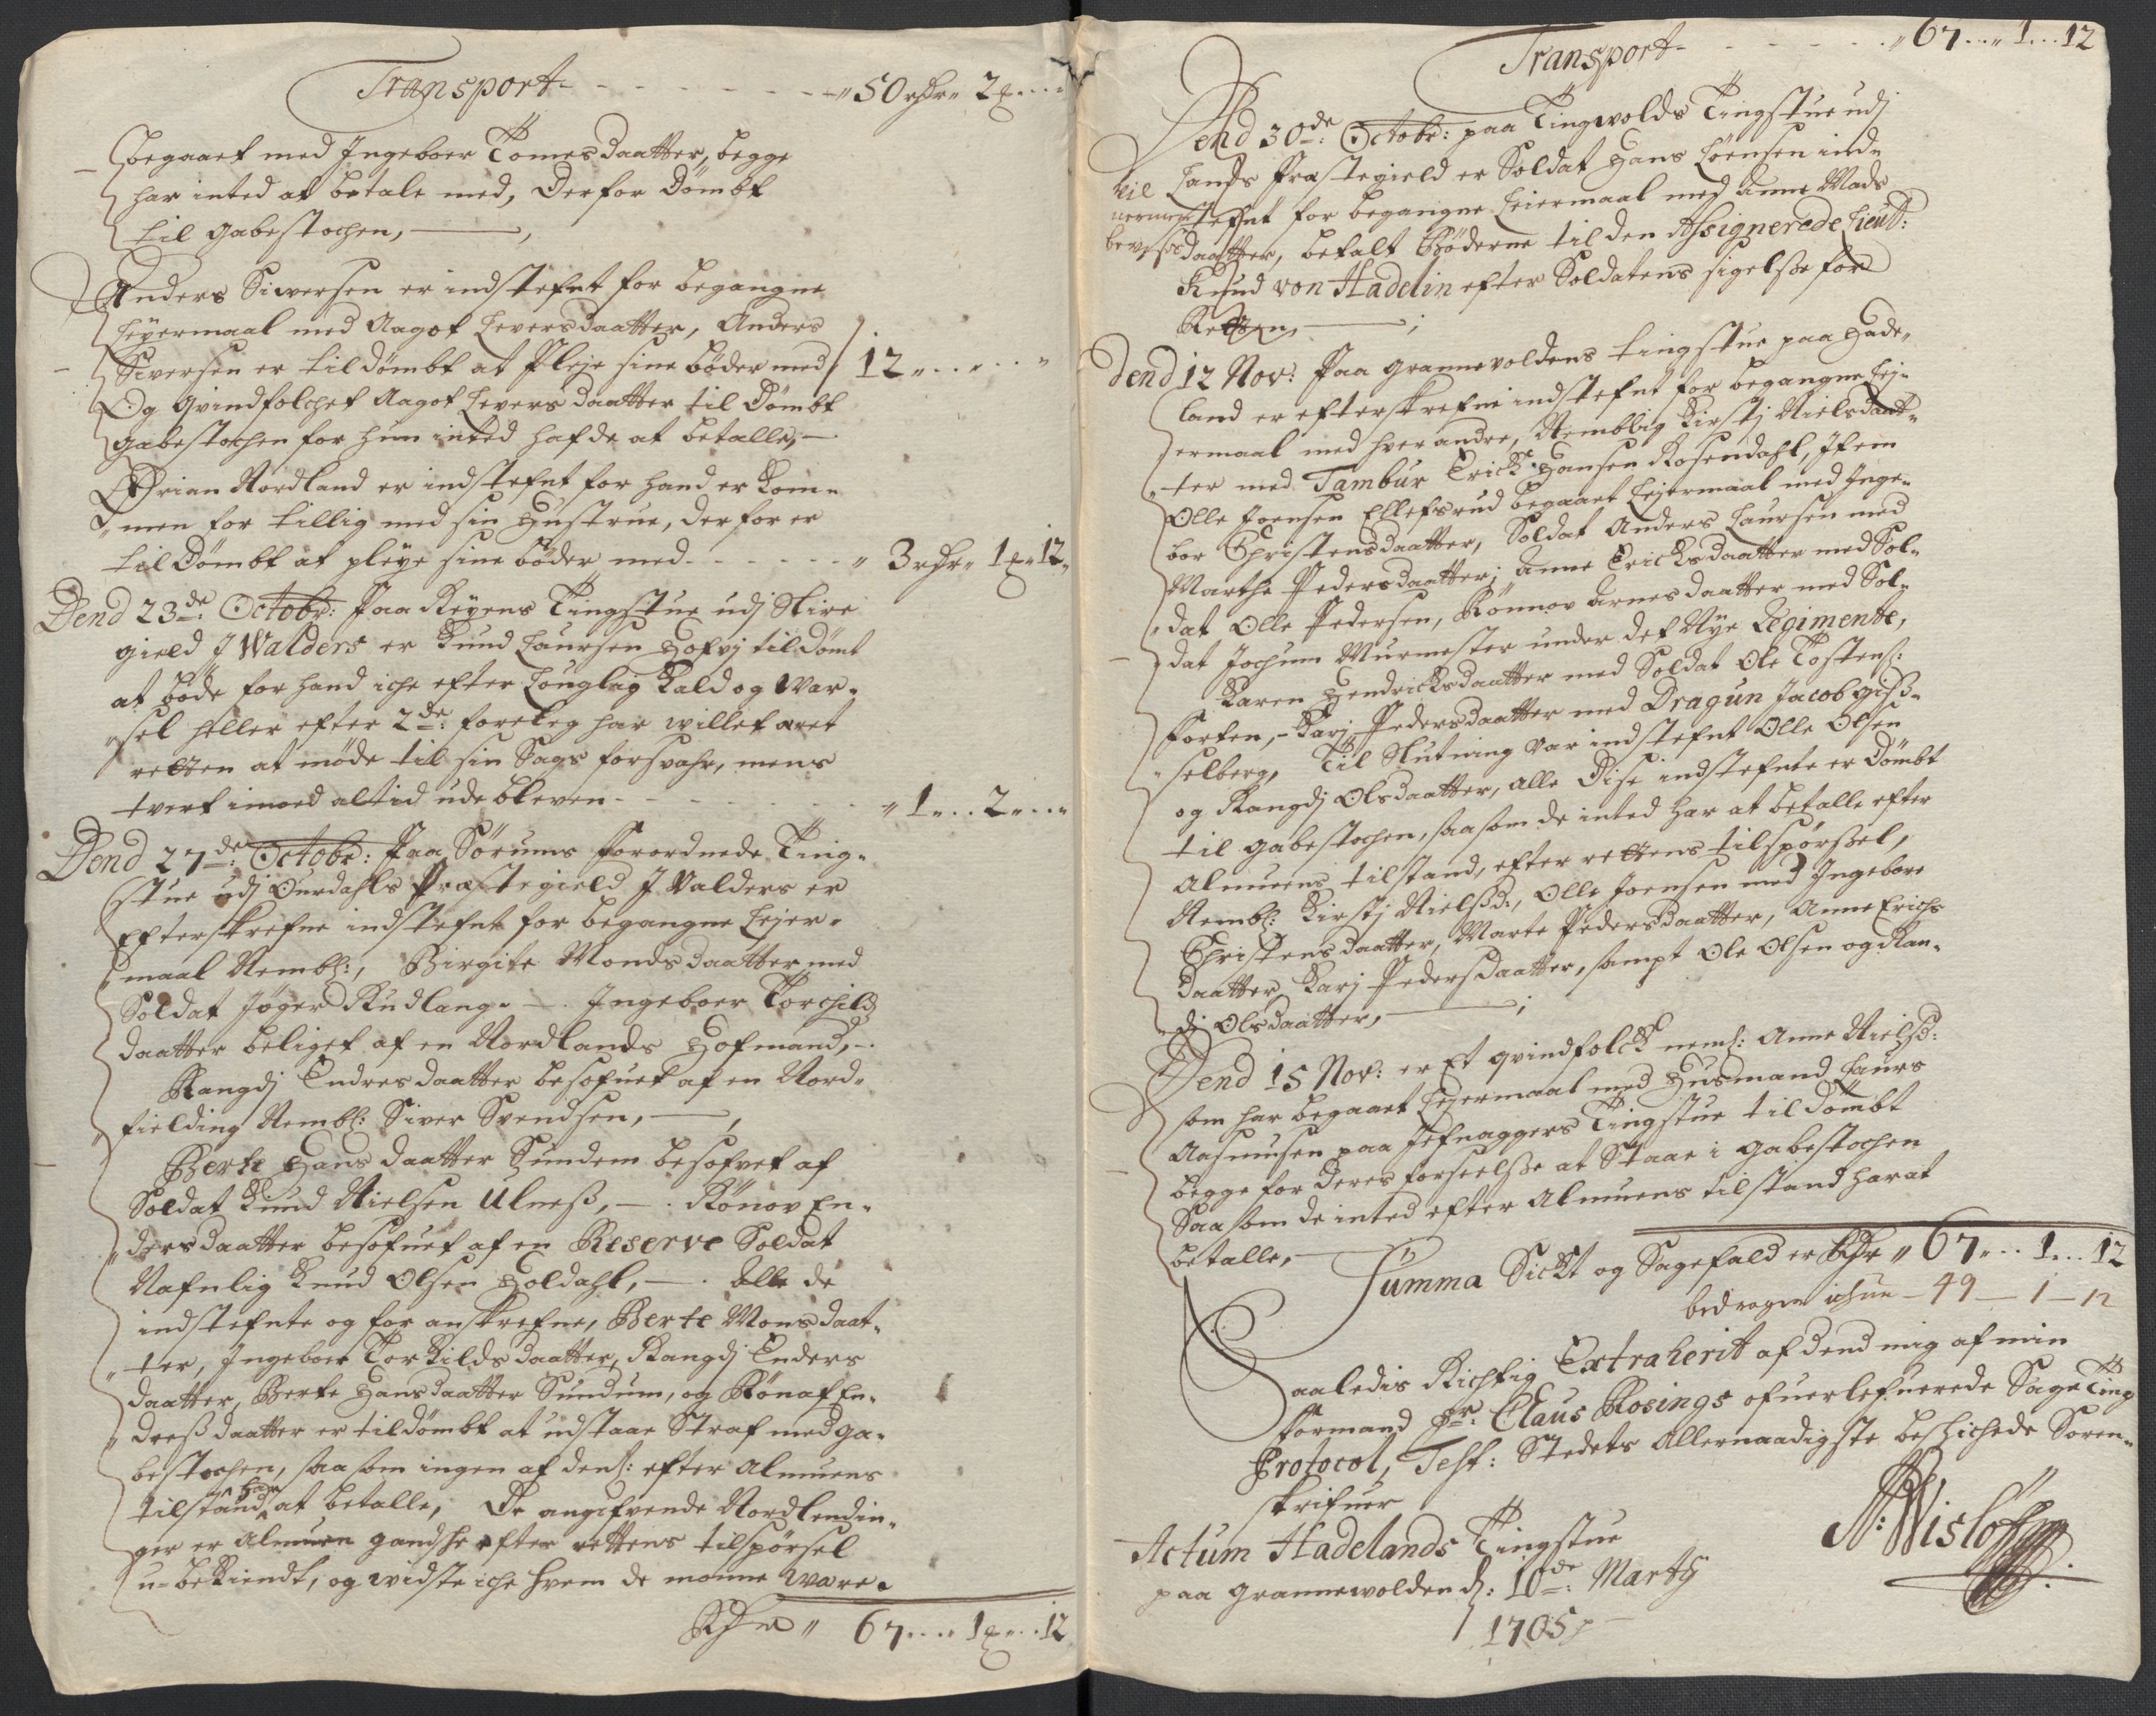 Transport - - - - - - - - „ 50 rhdr „ 2 ...
begaaet med Ingeboer Tomesdaatter, begge
har inted at betale med, Derfor Dömbt
til gabestochen, ——,
Anders Siwersen er indstefnt for begangne
Leyermaal med Aagot Leversdaatter, Anders
Siversen er tildömbt at Pleje sine böder med 12 „...„...„
Og qvindfolchet Aagot Levers daatter til Dömbt
gabestochen for hun inted hafde at betalle, —.
Christian Nordland er indstefnt for hand er kom-
men for tillig med sin Hustrue, derfor er
til Dömbt at pleye sine böder med - - - - - - „ 3 rhdr „ 1 „ 12 „
Dend 23de: Octobr: Paa Reyens Tingstue udj Slire
gield J Walders er Knud Laursen Hofvj tildömt
at böde for hand iche efter Louglig Kald og War-
sel heller efter 2de: foreleg har willet æret
retten at möde til sin Sags forsvahr, mens
tvert imod altid udebleven - - - - - - - - „ 1 „ .. 2 „ ...
Dend 27de: Octobr: Paa Sörums forordnede Ting-
stue udj Ourdahls Præstegield J Valders er
Efterskrefne indstefnt for begangne Lejer-
maal Nembl:, Birgite Monds daatter med
Soldat Jöger Rudlang - —. Ingeboer Torchilds
daatter beliget af en Nordlands Hofmand, -.
Rangdj Endresdaatter besofuet af en Nord-
fielding Nembl: Siver Svendsen, ——,
Berte Hans daatter Sundem besofvet af
Soldat Knud Nielsen Ulness, —. Rönov En-
dersdaatter besofuet af en Reserve Soldat
Nafnlig Knud Olsen Holdahl, —. Alle de
indstefnte og for anskrefne, Berte Monsdaat-
ter, Ingeboer Torkildsdaatter, Rangdj Enders
daatter, Berte Hansdaatter Sundum, og Rönaf En-
dressdaatter er tildömbt at udstaae Straf med ga-
bestochen, saa som ingen af dem: efter Almuens
tilstand har at betalle, De angifvende Nordlendin-
ger er Almuen gandshe efter rettens tilspörsel
u-bekiendt, og widste iche hvem de monne ware.
Rdr „ 67 .... 1 „.. 12
Transport - - - - - - - „ 67 ... 1 ... 12
Dend 30de: Octobr: paa Tingwolds Tingstue udj
Lands Præstegield er Soldat Hans Loensen ind-
til nermere bevis
stefnt for begangne Leiermaal med Anne Mads
daatter, betalt Böderne til den Assignerede Lieut:
Knud von Hadelin efter Soldatens sigelsse for
Retten, ——;
Dend 12 Nov: Paa Grannevoldens tingstue paa Hade-
land er efterskrefne indstefnt for begangne Lej-
ermaal med hver andre, Nemblig Kirstj Nielsdaat-
ter med Tambur Erick Hansen Rosendahl, Item
Olle Joensen Ellefsrud begaaet Lejermaal med Inge-
bor Christensdaatter, Soldat Anders Laursen med
Marthe Pedersdaatter; Anne Ericksdaatter med Sol-
dat Olle Pedersen, Rönnov Arnesdaatter med Sol-
dat Jochum Murmester under det Nye Regimente,
Karen Hendricksdaatter med Soldat Ole Tostens:
Forten, - Karj Pedersdaatter med Dragun Jacob giss-
selberg, Til Slutning var indstefnt Olle Olsen
og Rangdj Olsdaatter, alle Disse indstefnte er Dömbt
til gabestochen, saasom de inted har at betalle efter
Almuens tilstand, efter rettens tilspörssel,
Nembl: Kirstj Nielsd:, Olle Joensen med Ingebore
Christensdaatter, Marte Pedersdaatter, Anne Erichs
daatter, Karj Pedersdaatter, sampt Ole Olsen og Ran-
dj Olsdaatter, ——;
Dend 15 Nov: er Et qvindfolck neml: Anne Nielsd:
som har begaaet Lejermaal med Husmand Laurs
Aasmunsen paa Jefnaggers Tingstue til dömbt
begge for deres forseelsse at Staae i gabestochen
Saa som de inted efter Almuens tilstand har at
betalle, —
Summa Sickt og Sagefald er Rdr „ 67 ... 1 ... 12
bedragen ichun - 49 - 1 - 12
Saaledis Richtig Extraherit af dend mig af min
Formand Hr: Claus Rosings ofuerlefuerede Sage Ting
Protocol, Test: Stedets Allernaadigste beshichede Soren-
skrifuer
Actum Hadelands Tingstue
paa grannewolden d: 10de: Martij
1705
N: Wislöff